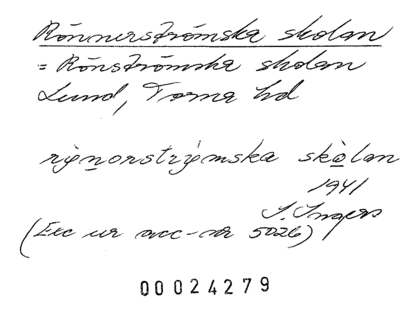 Rönnerströmska skolan
= Rönströmska skolan
Lund, Torna hd
rỿnorstrỿmska skòlan
1941
I. Ingers
(Exc ur acc-nr 5026)
00024279